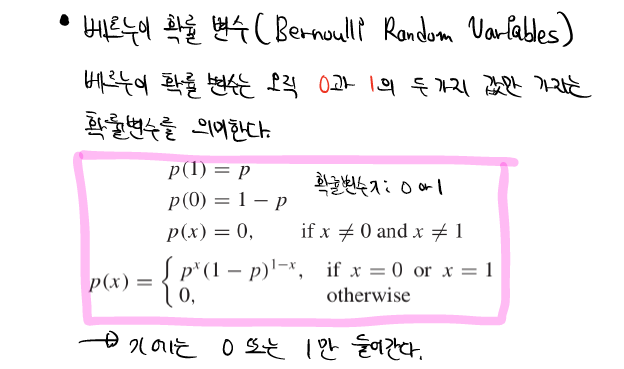 • 베르누이 확률 변수 (Bernoulli Random Variables)
베르누이 확률 변수는 오직 0과 1의 두가지 값만 가지는
확률변수를 의미한다.
p(1) = p
확률변수 x: 0 or 1
p(0) = 1 − p
p(x) = 0, if x ≠ 0 and x ≠ 1
p(x) = { p^x(1 − p)^{1−x}, if x = 0 or x = 1
0, otherwise
→ x에는 0 또는 1만 들어간다.